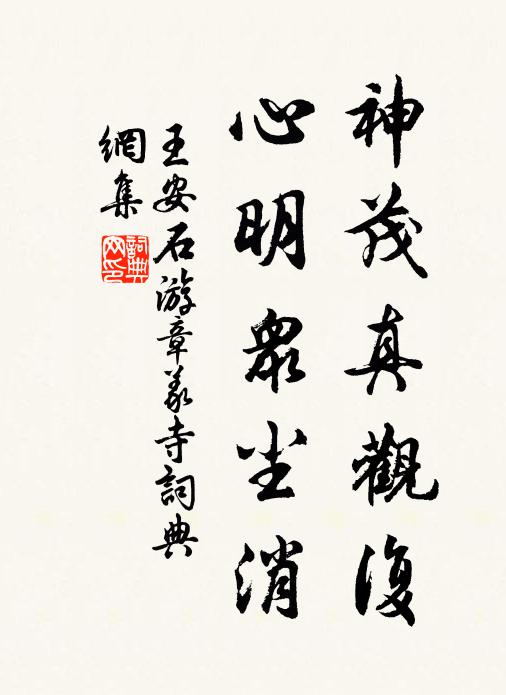 神茂真觀復
心明眾尘消
王安石游章義寺詞典
網集
詞典
网印